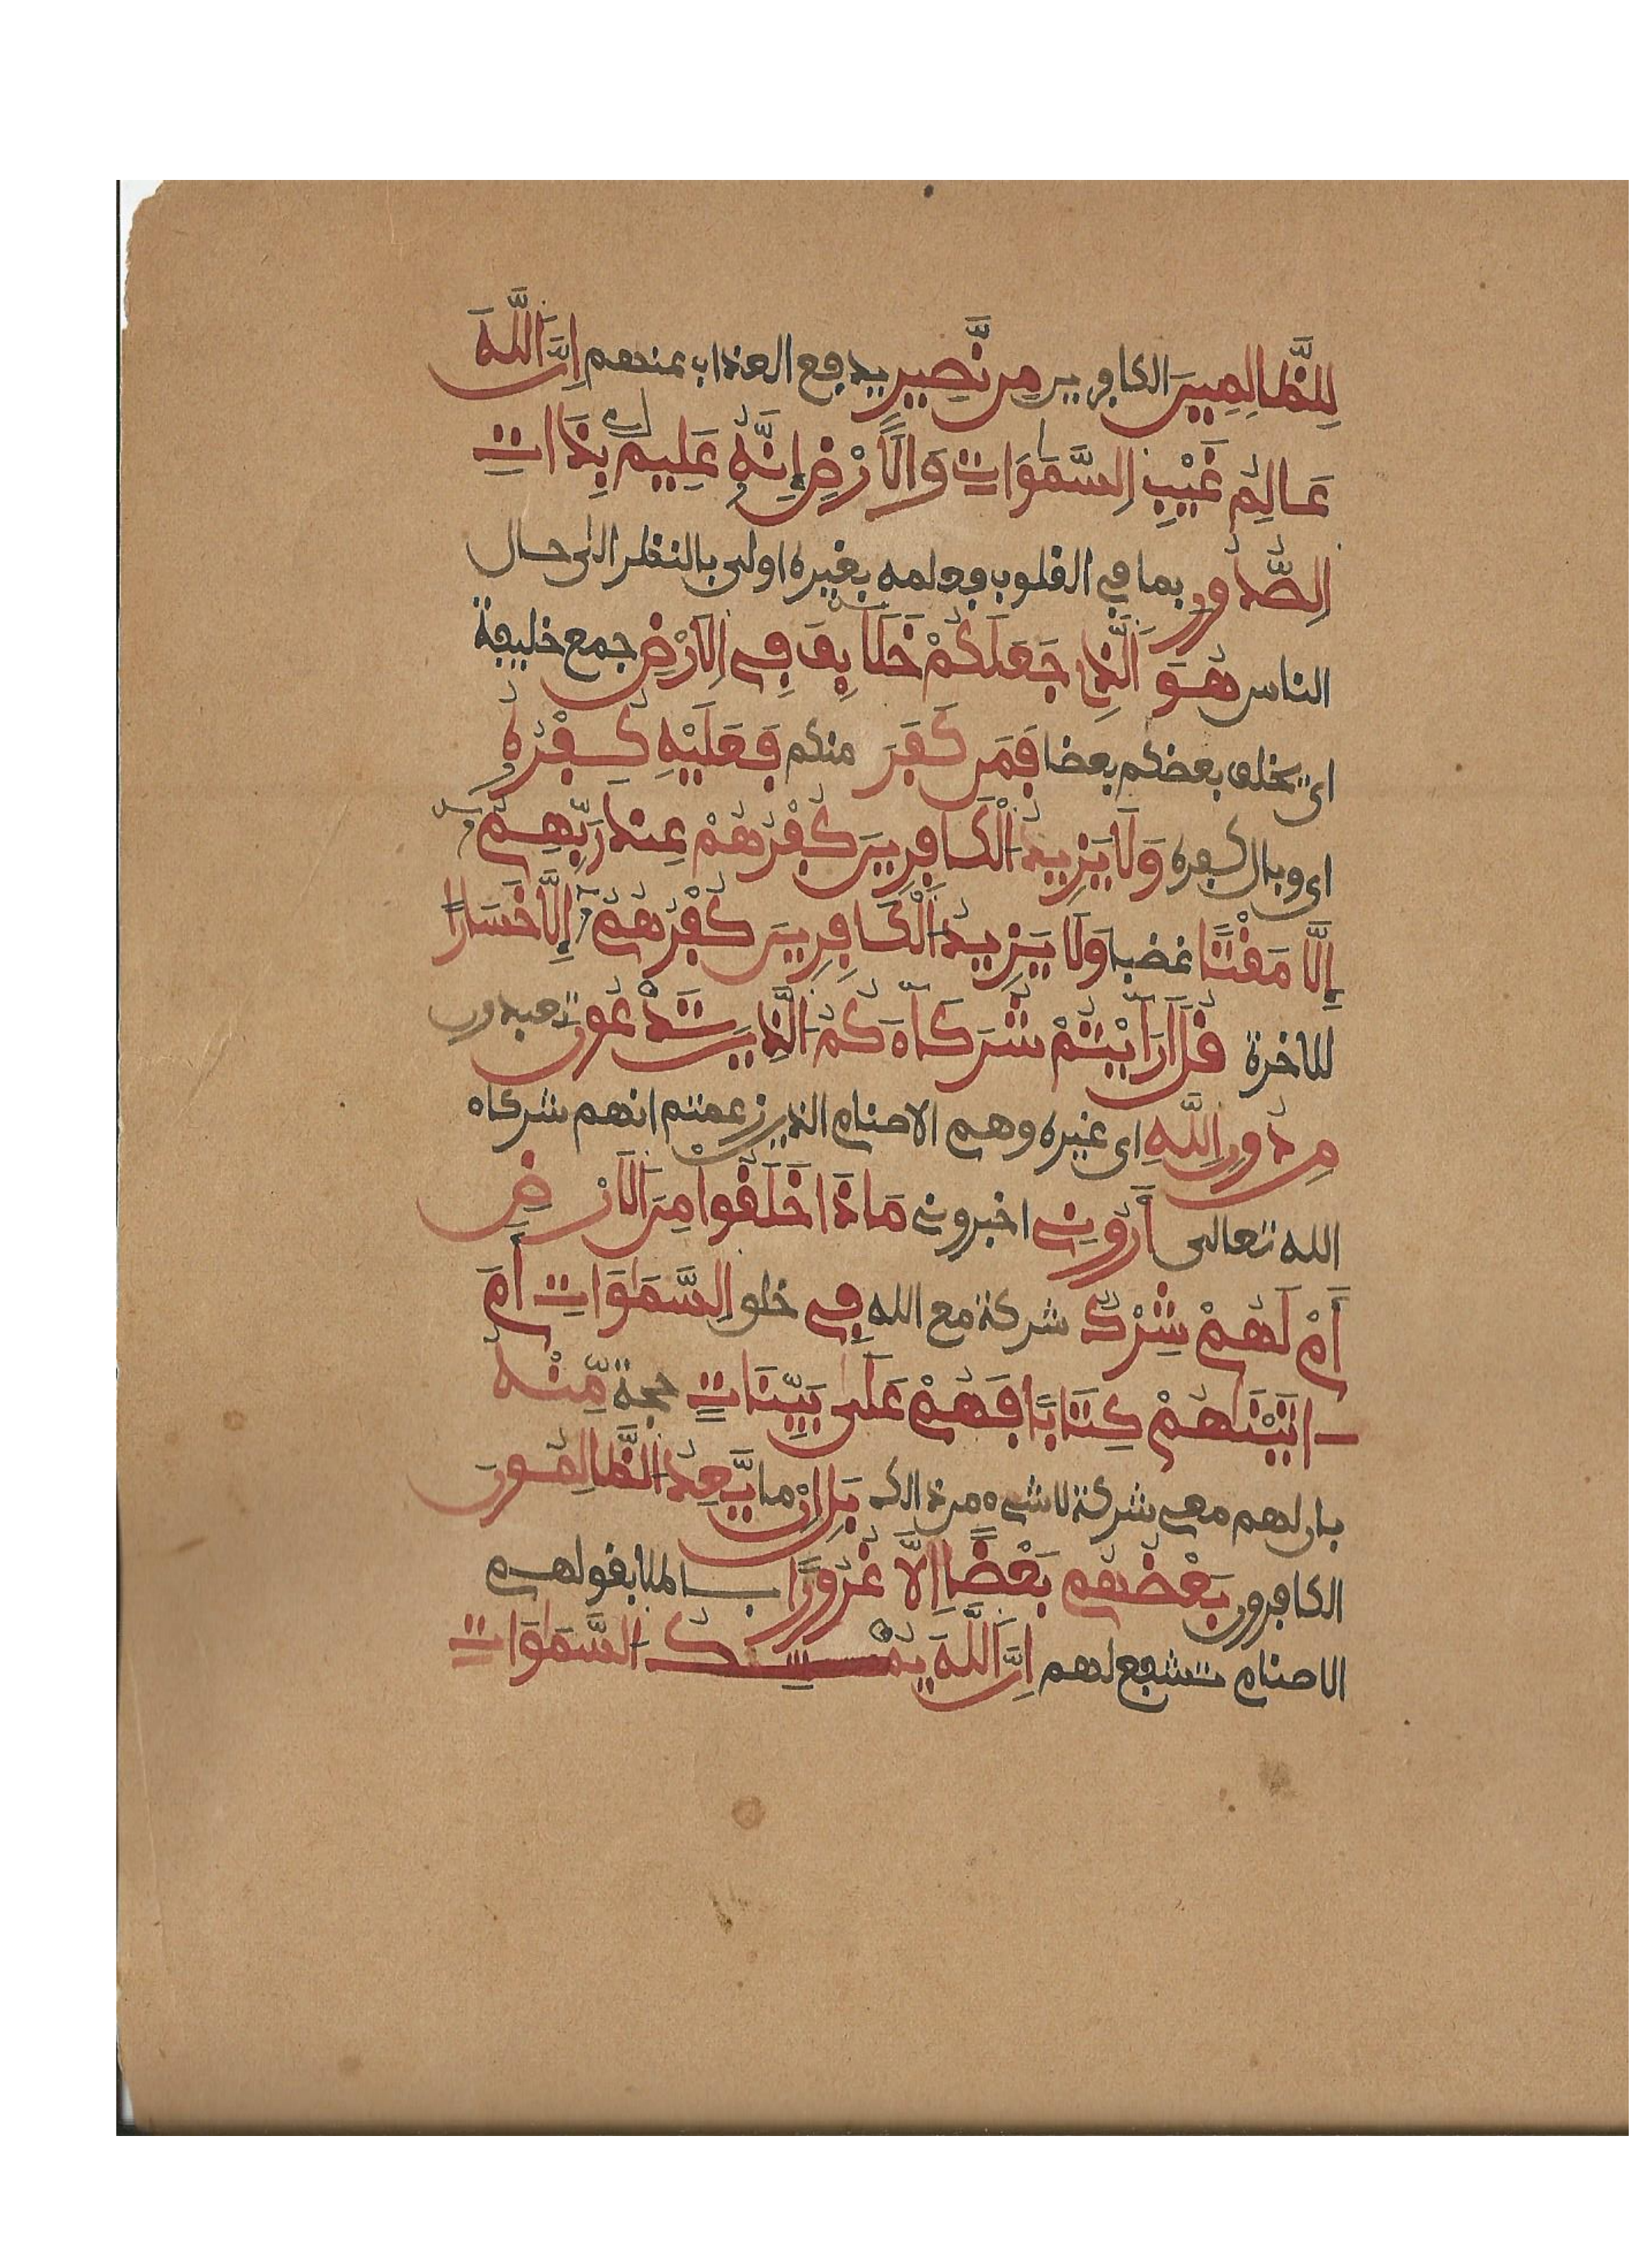 لِلظَّالِمِينَ الكافرين مِن نَّصِيرٍ يدفع العذاب عنهم إِنَّ اللَّهَ
عَالِمُ غَيْبِ السَّمَوَاتِ وَالْأَرْضِ إِنَّهُ عَلِيمٌ بِذَاتِ
الصُّدُورِ بما في القلوب فعلمه بغيره اولى بالنظر الى حال
الناس هُوَ الَّذِي جَعَلَكُمْ خَلَائِفَ فِي الْأَرْضِ جمع خليفة
اي يخلف بعضكم بعضا فَمَن كَفَرَ منكم فَعَلَيْهِ كُفْرُهُ
اي وبال كفره وَلَا يَزِيدُ الْكَافِرِينَ كُفْرُهُمْ عِندَ رَبِّهِمُ
إِلَّا مَقْتًا غضبا وَلَا يَزِيدُ الْكَافِرِينَ كُفْرُهُمُ إِلَّا خَسَارًا
للاخرة قُلْ أَرَأَيْتُمْ شُرَكَاءَكُمُ الَّذِينَ تَدْعُونَ تعبدون
مِن دُونِ اللَّهِ اي غيره وهم الاصنام الذين زعمتم انهم شركاء
الله تعالى أَرُونِي اخبروني مَاذَا خَلَقُوا مِنَ الْأَرْضِ
أَمْ لَهُمْ شِرْكٌ شركة مع الله فِي خلق السَّمَوَاتِ أَمَ
اتَيْنَاهُمْ كِتَابًا فَهُمْ عَلَى بَيِّنَاتٍ حجة مِّنْهُ
بان لهم معي شركة لا شيء من ذالك بَلْ إِنْ مَا يَّعِدُ الظَّالِمُونَ
الكافرون بَعْضُهُم بَعْضًا إِلَّا غُرُورًا باطلا بقولهم
الاصنام تشفع لهم إِنَّ اللَّهَ يُمْسِكُ السَّمَوَاتِ